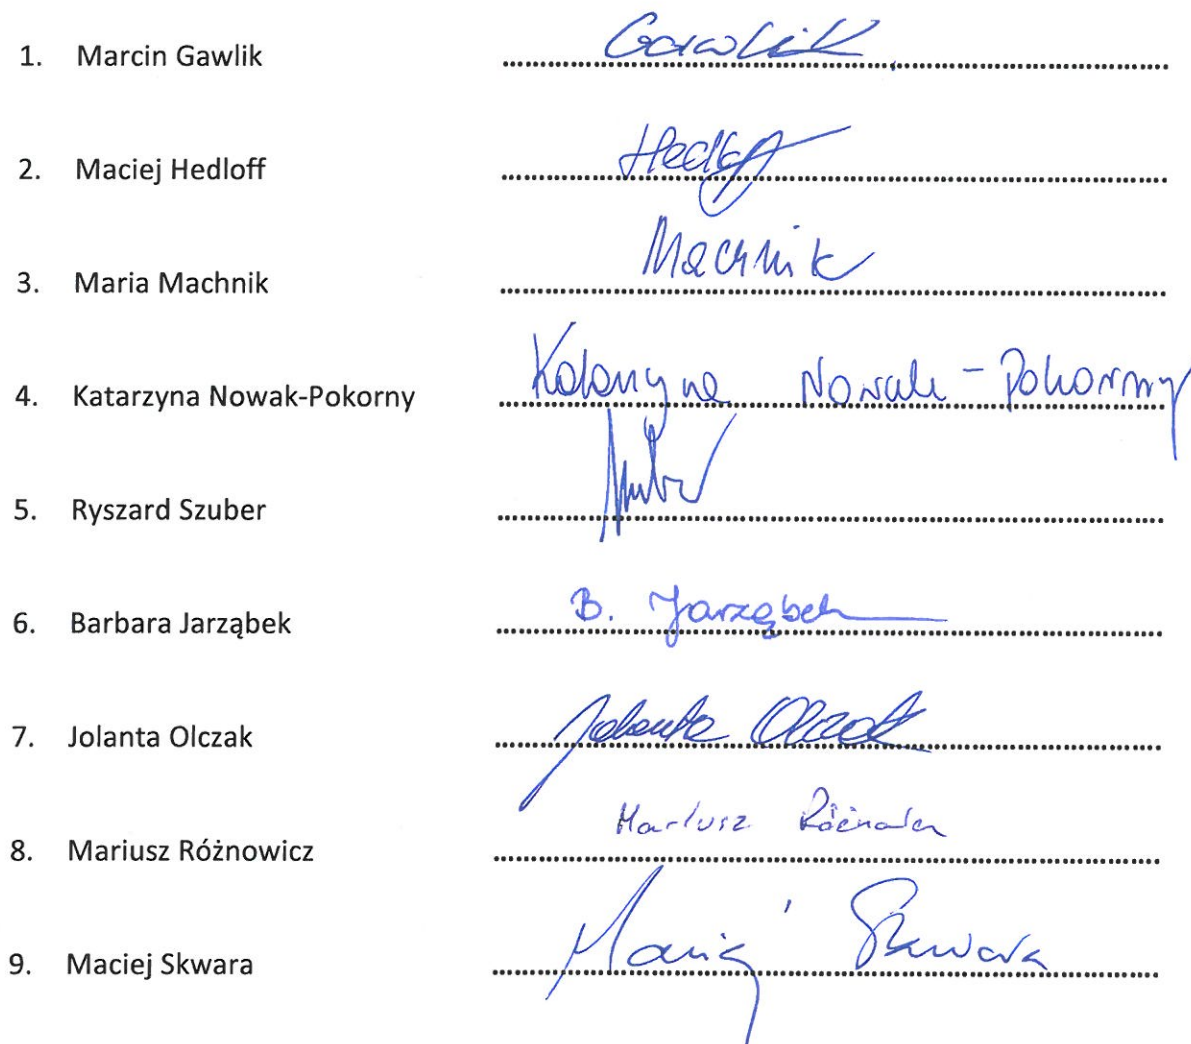 1. Marcin Gawlik Gawlik
2. Maciej Hedloff Hedloff
3. Maria Machnik Machnik
4. Katarzyna Nowak-Pokorny Katarzyna Nowak-Pokorny
5. Ryszard Szuber Szuber
6. Barbara Jarząbek B. Jarząbek
7. Jolanta Olczak Jolanta Olczak
8. Mariusz Różnowicz Mariusz
9. Maciej Skwara Maciej Skwara